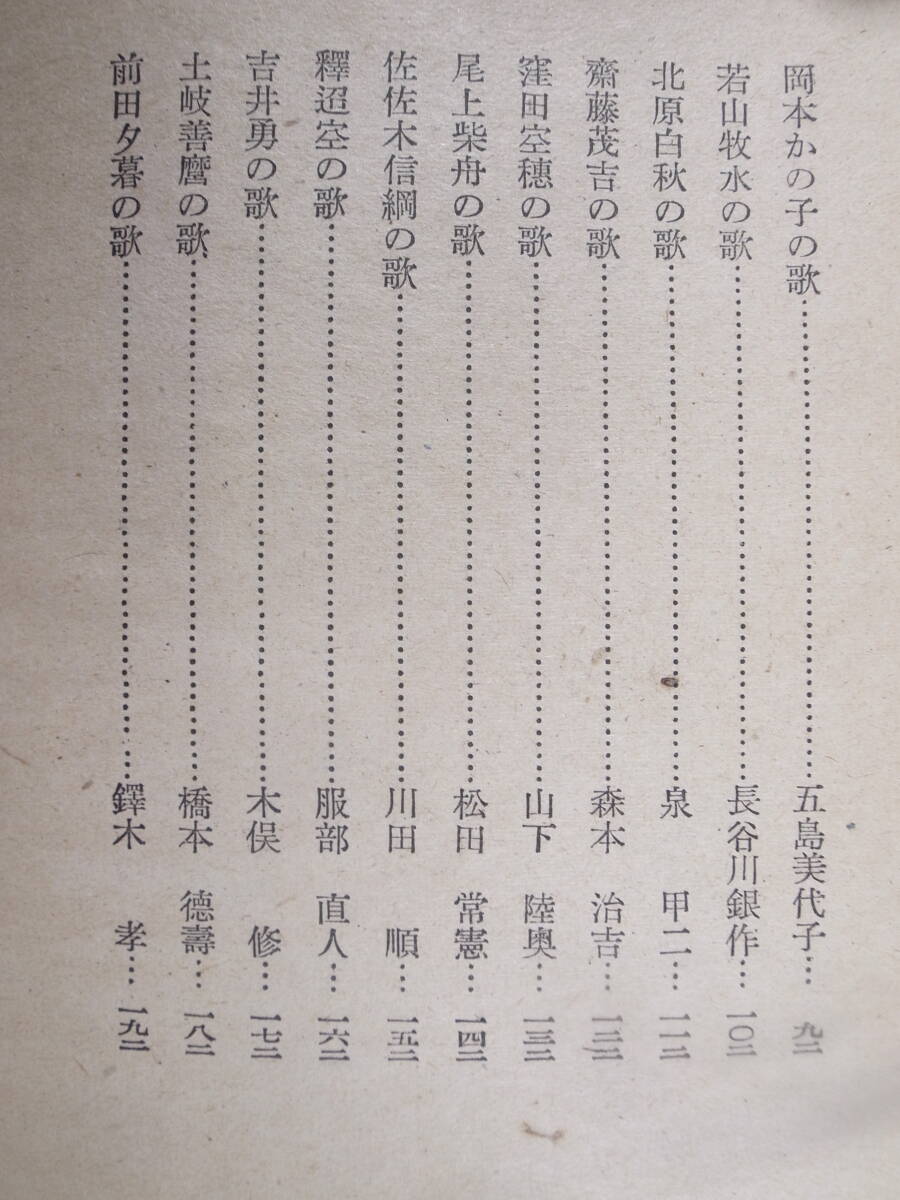 岡本かの子の歌……五島美代子…九二
若山牧水の歌……長谷川銀作…一〇二
北原白秋の歌……泉 甲二…一一二
齋藤茂吉の歌……森本 治吉…一二二
窪田空穗の歌……山下 陸奥…一三二
尾上柴舟の歌……松田 常憲…一四二
佐佐木信綱の歌……川田 順…一五二
釋迢空の歌……服部 直人…一六二
吉井勇の歌……木俣 修…一七二
土岐善麿の歌……橋本 德壽…一八二
前田夕暮の歌……鐸木 孝…一九二